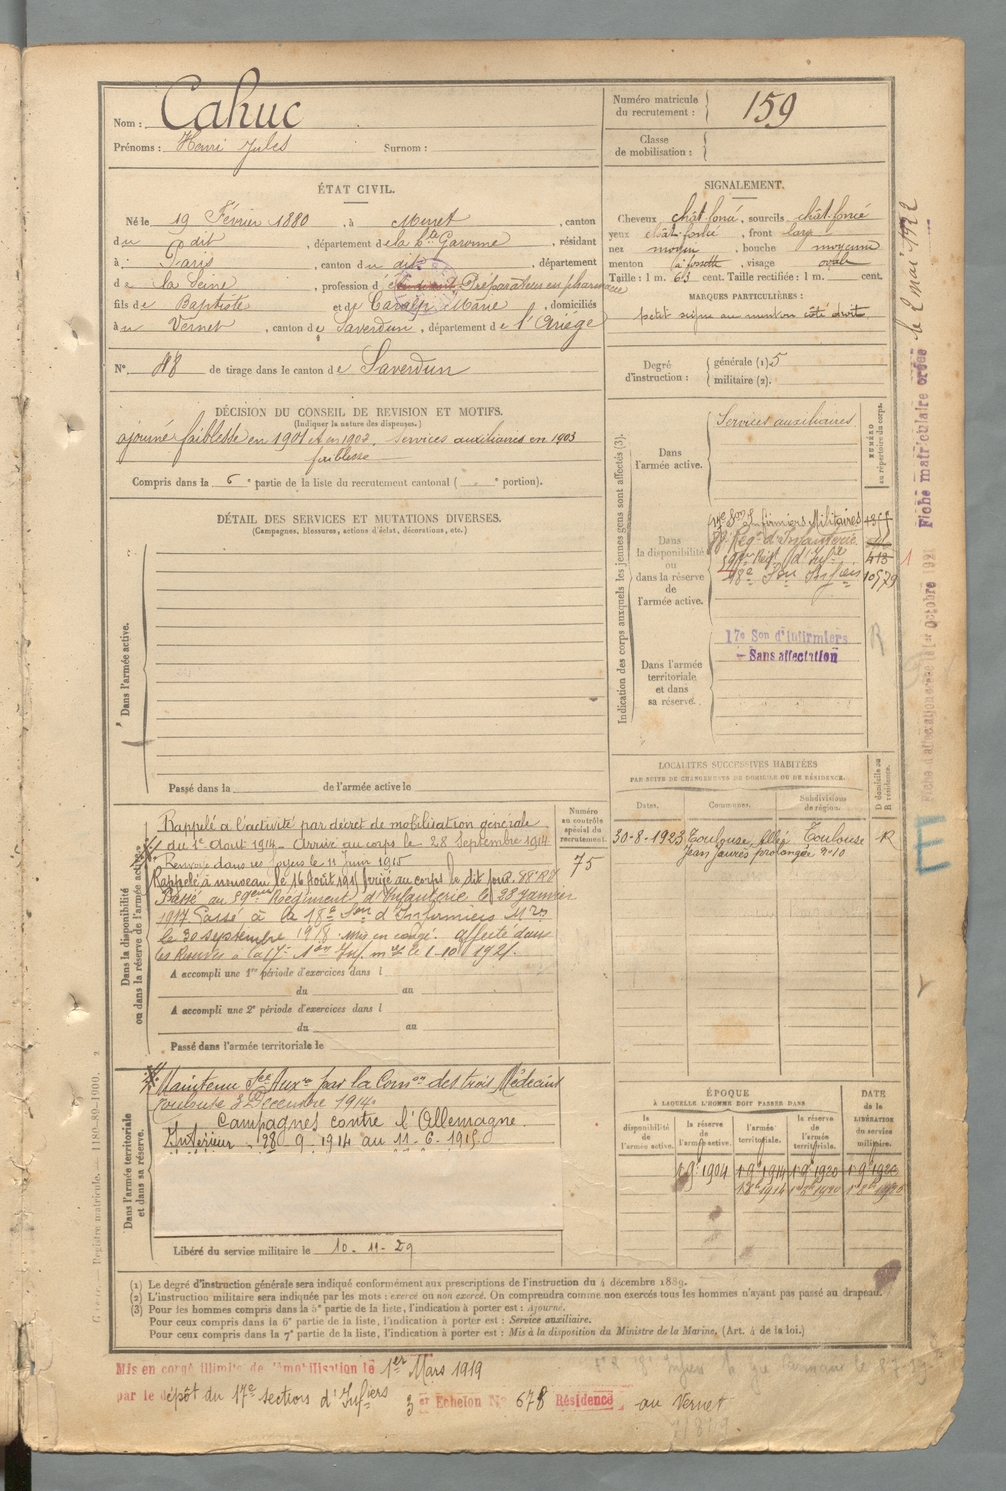 Nom : Cahuc
Prénoms : Henri Jules Surnom :
Numéro matricule du recrutement : 159
Classe de mobilisation :
ÉTAT CIVIL.
Né le 19 Février 1880, à Muret, canton
du dit, département de la Hte Garonne, résidant
à Paris, canton du dit, département
de la Seine, profession d Préparateur en pharmacie
fils de Baptiste et de Marie, domiciliés
à u Vernet, canton de Saverdun, département de l'Ariège
N° 48 de tirage dans le canton de Saverdun
SIGNALEMENT.
Cheveux chât. foncé, sourcils chât. foncé
yeux chât. foncé, front large
nez moyen, bouche moyenne
menton à fossette, visage ovale
Taille : 1 m. 63 cent. Taille rectifiée : 1 m. cent.
MARQUES PARTICULIÈRES :
petit signe au menton côté droit
Degré d'instruction : générale (1) 5
militaire (2).
DÉCISION DU CONSEIL DE REVISION ET MOTIFS.
(Indiquer la nature des dispenses.)
ajourné faiblesse en 1901 et en 1902. Services auxiliaires en 1903
faiblesse
Compris dans la 6e partie de la liste du recrutement cantonal ( e portion).
DÉTAIL DES SERVICES ET MUTATIONS DIVERSES.
(Campagnes, blessures, actions d'éclat, décorations, etc.)
Dans l'armée active.
Passé dans la de l'armée active le
Indication des corps auxquels les jeunes gens sont affectés (3).
NUMÉRO au répertoire du corps.
Dans l'armée active.
Services auxiliaires
Dans la disponibilité ou dans la réserve de l'armée active.
Son Infirmiers Militaires
88e Regt d'Infanterie
59e Regt d'Infie 413
18e Son Infiers 10579
Dans l'armée territoriale et dans sa réserve.
17e Son d'Infirmiers
- Sans affectation
R
Fiche matriculaire créée le 2 mai 1922
Fiche d'affectation créée le 1er Octobre 1921
LOCALITÉS SUCCESSIVES HABITÉES
PAR SUITE DE CHANGEMENTS DE DOMICILE OU DE RÉSIDENCE.
Dates. Communes. Subdivisions de région. D domicile ou R résidence.
30-8-1923 Toulouse, Allée Toulouse R
Jean Jaurès prolongée n° 10
E
Dans la disponibilité ou dans la réserve de l'armée active.
Numéro au contrôle spécial du recrutement.
75
Rappelé à l'activité par décret de mobilisation générale
du 1er Août 1914. Arrivé au corps le 28 Septembre 1914
Renvoyé dans ses foyers le 11 Juin 1915
Rappelé à nouveau le 16 Août 1915 arrivé au corps le dit jour. 88 RI
Passé au 59ème Régiment d'Infanterie le 28 Janvier
1917 Passé à la 18e Son d'Infirmiers Mres
le 30 septembre 1918. Mis en congé. affecté dans
les Réserves à la 17e Son Inf. mres le 1-10 1921.
A accompli une 1re période d'exercices dans l
du au
A accompli une 2e période d'exercices dans l
du au
Passé dans l'armée territoriale le
Dans l'armée territoriale et dans sa réserve.
Maintenu Sce Auxre par la Comon des trois Médecins
Toulouse 3 Décembre 1914.
Campagnes contre l'Allemagne
Intérieur 28 9 1914 au 11-6-1915
Libéré du service militaire le 10-11-29
ÉPOQUE
À LAQUELLE L'HOMME DOIT PASSER DANS
la disponibilité de l'armée active. la réserve de l'armée active. l'armée territoriale. la réserve de l'armée territoriale.
DATE de la LIBÉRATION du service militaire.
1 9e 1904 1 9e 1914 1 9e 1920 1 9e 1926
(1) Le degré d'instruction générale sera indiqué conformément aux prescriptions de l'instruction du 4 décembre 1889.
(2) L'instruction militaire sera indiquée par les mots : exercé ou non exercé. On comprendra comme non exercés tous les hommes n'ayant pas passé au drapeau.
(3) Pour les hommes compris dans la 5e partie de la liste, l'indication à porter est : Ajourné.
Pour ceux compris dans la 6e partie de la liste, l'indication à porter est : Service auxiliaire.
Pour ceux compris dans la 7e partie de la liste, l'indication à porter est : Mis à la disposition du Ministre de la Marine. (Art. 4 de la loi.)
Registre matricule. — 1180-89-1900.
Mis en congé illimité de démobilisation le 1er Mars 1919
par le dépôt du 17e section d'Infiers 3e Echelon N° 678 Résidence au Vernet